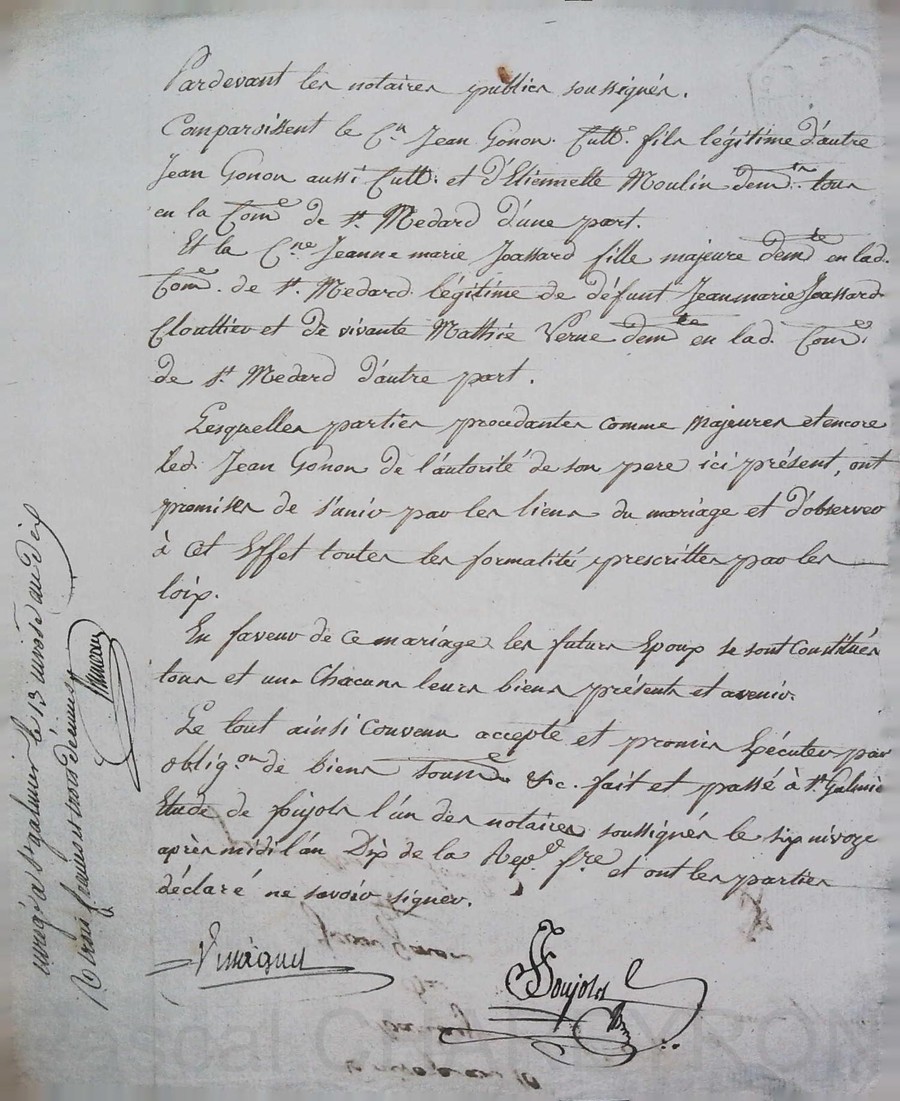 Pardevant les notaires publics soussignés.
Comparoissent le Cn Jean Gonon. Cultr. fils légitime d'autre
Jean Gonon aussi Cultr. et d'Etiennette Moulin demts. tous
en la Come de St. Medard d'une part.
Et la Cne Jeanne marie Joassard fille majeure demte en lad.
Come. de St. Medard légitime de défunt Jeanmarie Joassard
Clouttier et de vivante Mathie Verne demte en lad. Come.
de St. Medard d'autre part.
Lesquelles parties procedantes comme majeures et encore
led. Jean Gonon de l'autorité de son pere ici présent, ont
promises de s'unir par les liens du mariage et d'observer
à cet Effet toutes les formalités prescrittes par les
loix.
En faveur de ce mariage les futurs Epoux se sont Constitués
tous et uns Chacuns leurs biens présents et avenir.
Le tout ainsi Convenu accepté et promis Exécuter par
obligon de biens soumon &c. fait et passé à St Galmier
Etude de Soujols l'un des notaires soussignés le six nivoze
après midi l'an Dix de la Repe fre et ont les parties
déclaré ne savoir signer.
Soujols
enregé à St galmier le 13 nivose an dix
francs et trois décimes
CHAMBEYRON